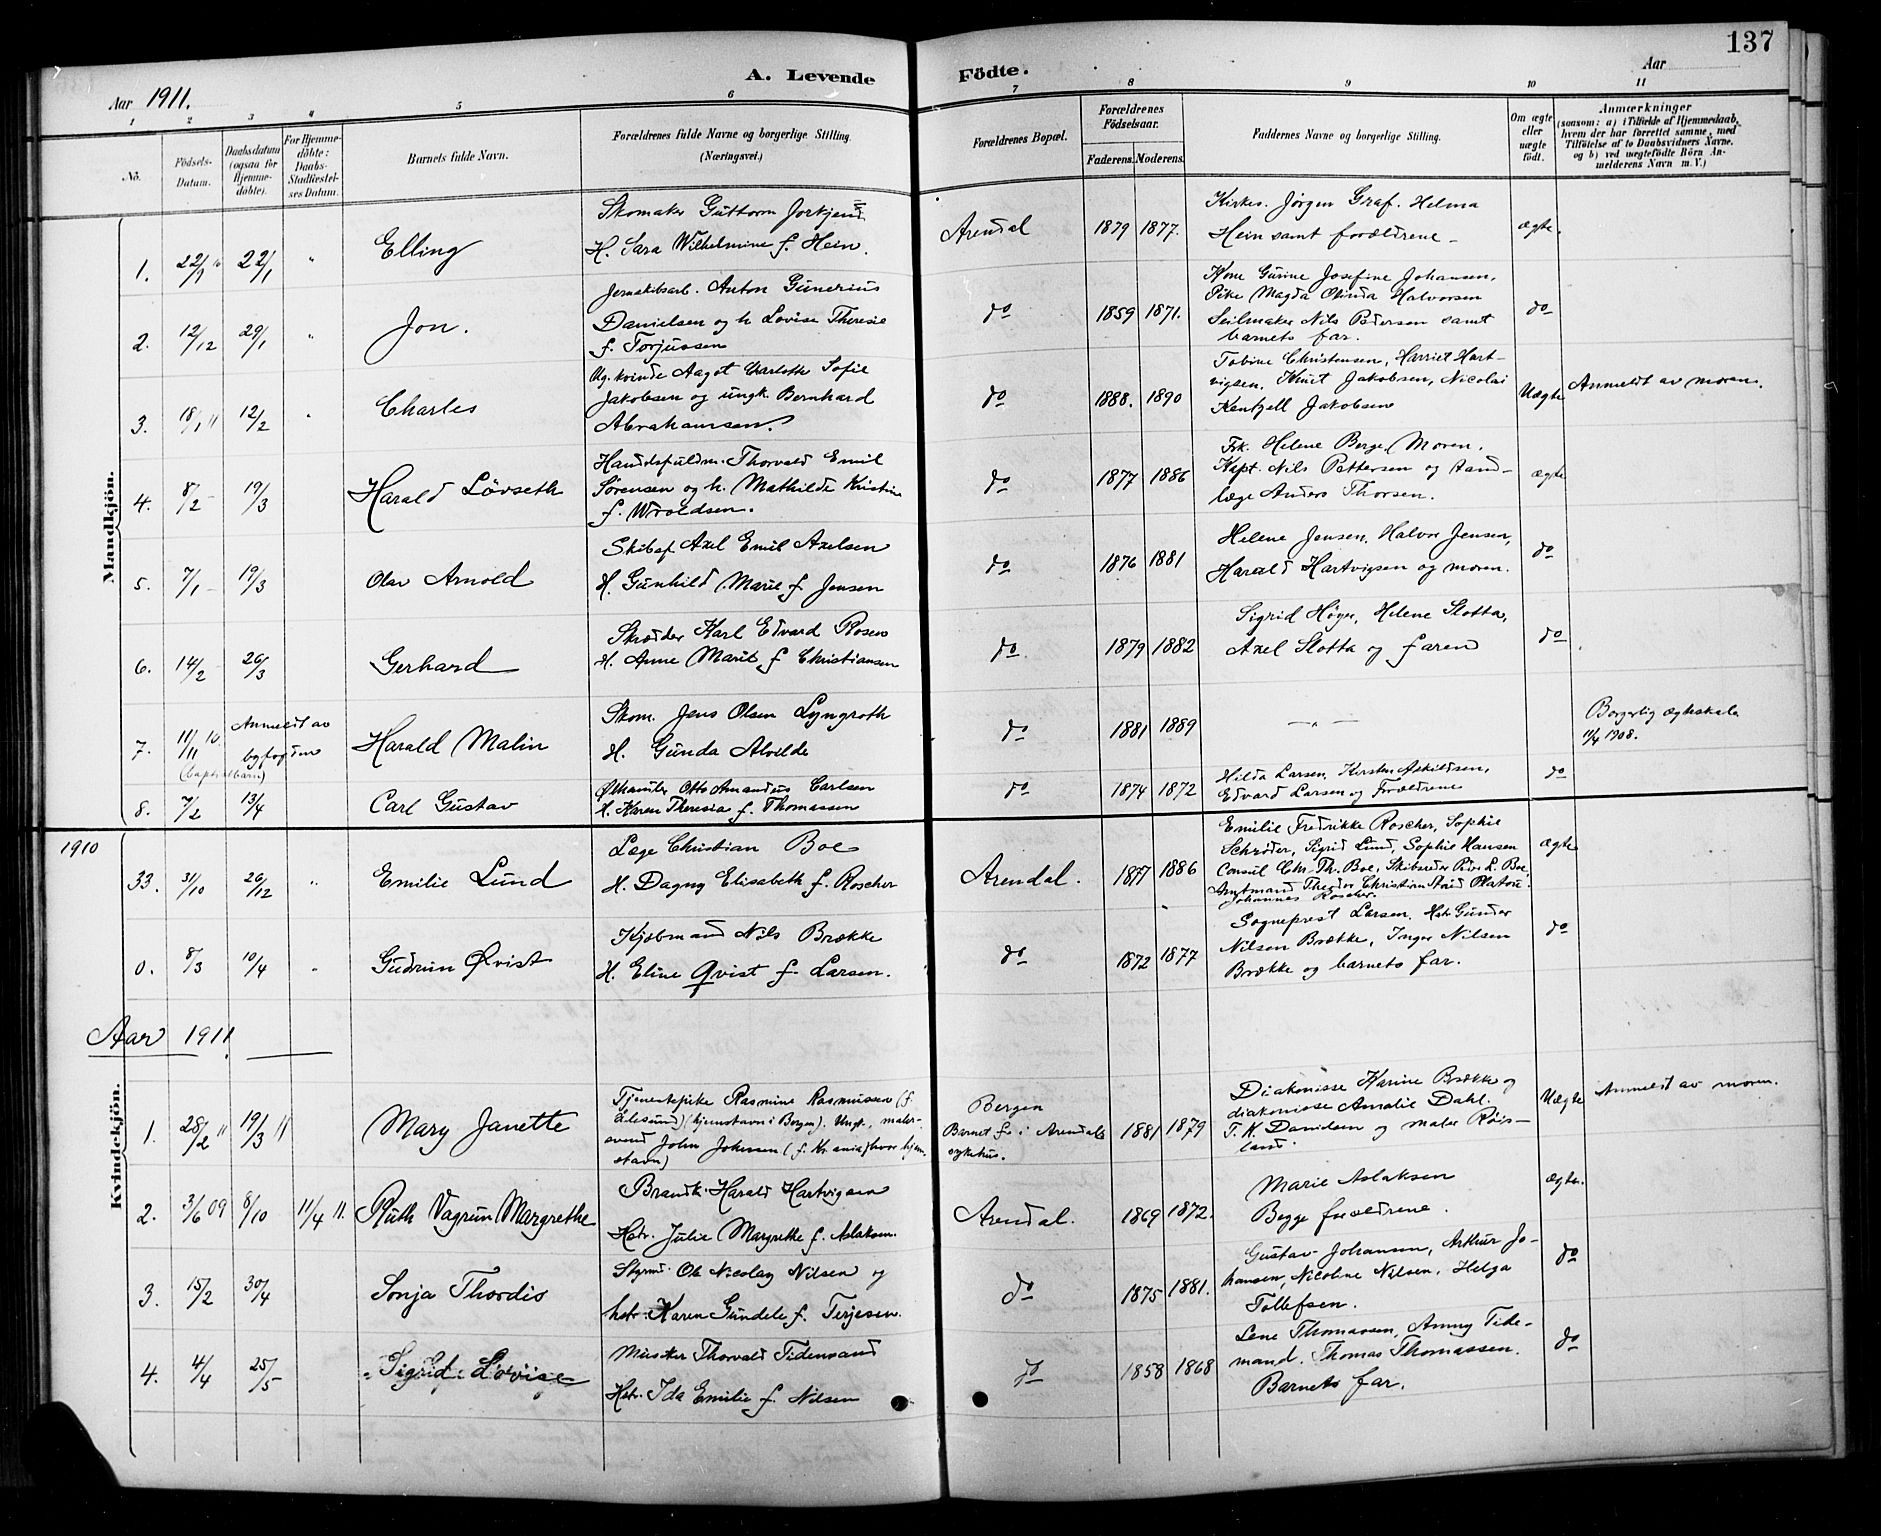 137
A. Levende Födte.
Aar 1911.
Aar
1 2 3 4 5 6 7 8 9 10 11
No.
Födsels-Datum.
Daabsdatum (ogsaa för Hjemme-döbte).
For Hjemme-döbte: Daabs-Stadfæstel-ses Datum.
Barnets fulde Navn.
Forældrenes fulde Navne og borgerlige Stilling. (Næringsvei.)
Forældrenes Bopæl.
Forældrenes Födselsaar.
Faderens. Moderens.
Faddernes Navne og borgerlige Stilling.
Om ægte eller uægte födt.
Anmærkninger
(saasom: a) i Tilfælde af Hjemmedaab, hvem der har forrettet samme, med Tilföielse af to Daabsvidners Navne, og b) ved uægtefödte Börn An-melderens Navn m. V.)
Mandkjön.
1. 22/1 22/1 " Elling
Skomaker Guttorm
H. Sara Wilhelmine f. Hein.
Arendal 1879 1877.
Kirkes. Jørgen Graf. Helma
Hein samt forældrene
ægte.
2. 12/12 29/1 " Jon.
Jernskibsarb. Anton Gunerius
Danielsen og h. Lovise Theresie
f. Torjussen
do 1859 1871.
Kone Gurine Josefine Johansen,
Pike Magda Olinda Halvorsen
Seilmaker Nils Pedersen samt
barnets far.
do
3. 18/1 11 12/2 " Charles
Ug. kvinde Aagot Charlotte Sofie
Jakobsen og ungk. Bernhard
Abrahamsen.
do 1888. 1890
Tobine Christensen, Harriet Hart-
vigsen, Knut Jakobsen, Nicolai
Jakobsen
Uægte
Anmeldt av moren.
4. 8/2 19/3 Harald Lövseth
Handelsfuldm. Thorvald Emil
Sørensen og h. Mathilde Kristine
f. Wroldsen.
do 1877 1886
Frk. Helene Berge, Moren,
Kapt. Nils Pettersen og tand-
læge Anders Thorsen.
ægte
5. 7/1 19/3 Olav Arnold
Skibsf Axel Emil Axelsen
H. Gunhild Marie f. Jensen
do 1876 1881
Helene Jensen, Halvor Jensen,
Harald Hartvigsen og moren.
do
6. 14/2 26/3 Gerhard
Skrædder Karl Edvard Rosen
H. Anne Marie f Christiansen
do. 1879 1882
Sigrid Høyer, Helene Slotta,
Axel Slotta og faren
do
7. 11/11 10 Anmeldt av
byfogden
(baptistbarn)
Harald Malin
Skom. Jens Olsen Lyngroth
H. Gunda Alvilde
do 1881 1889
— " —
Borgerlig ægteskab
11/4 1908.
8. 7/2 13/4 Carl Gustav
Ølhandler Otto Amandus Carlsen
H. Karen Theresia f. Thomassen
do 1874 1872
Hilda Larsen, Kirsten Askildsen,
Edvard Larsen og Forældrene
do
1910
33. 31/10 26/12 " Emilie Lund
Læge Christian Boe
H. Dagny Elisabeth f. Roscher
Arendal. 1877 1886
Emilie Fredrikke Roscher, Sophie
Schrøder, Sigrid Lund, Sophie Hansen
Consul Chr. Th. Boe, Skibsreder L. Boe,
Amtmand Theodor Christian Platou
Johannes Roscher.
ægte
0. 8/3 10/4 " Gudrun Qvist
Kjøbmand Nils Brække
H. Eline Qvist f. Larsen.
do 1872 1877
Sogneprest Larsen. Hstr. Gunder
Nilsen Brække, Inger Nilsen
Brække og barnets far.
do
Aar 1911.
Kvindekjön.
1. 28/2 11 19/3 11 Mary Janette
Tjenestepike Rasmine Rasmussen (f.
Ålesund) (hjemstavn i Bergen). Ungk., maler-
svend John Johnsen (f. Kr.ania) hvor hjem-
stavn)
Bergen
Barnet f. i Arendals
sykehus.
1881 1879
Diakonisse Karine Brække og
diakonisse Amalie Dahl.
T. K. Danielsen og maler Røis-
land.
Uægte
Anmeldt av moren.
2. 3/6 09 8/10 11/4 11. Ruth Vagrun Margrethe
Brandk. Harald Hartvigsen
Hstr. Julie Margrethe f. Aslaksen.
Arendal. 1869 1872.
Marie Aslaksen
Begge forældrene.
ægte.
3. 15/2 30/4 Sonja Thordis
Styrmd. Ole Nicolay Nilsen og
hstr. Karen Gundele f. Terjesen.
do 1875 1881.
Gustav Johansen, Arthur Jo-
hansen, Nicoline Nilsen, Helga
Tollefsen.
do
4. 4/4 25/5 Sigrid Lovise
Musiker Thorvald Tidemand
Hstr. Ida Emilie f. Nilsen
do 1858 1868
Lene Thomassen, Anny Tide-
mand. Thomas Thomassen.
Barnets far.
do